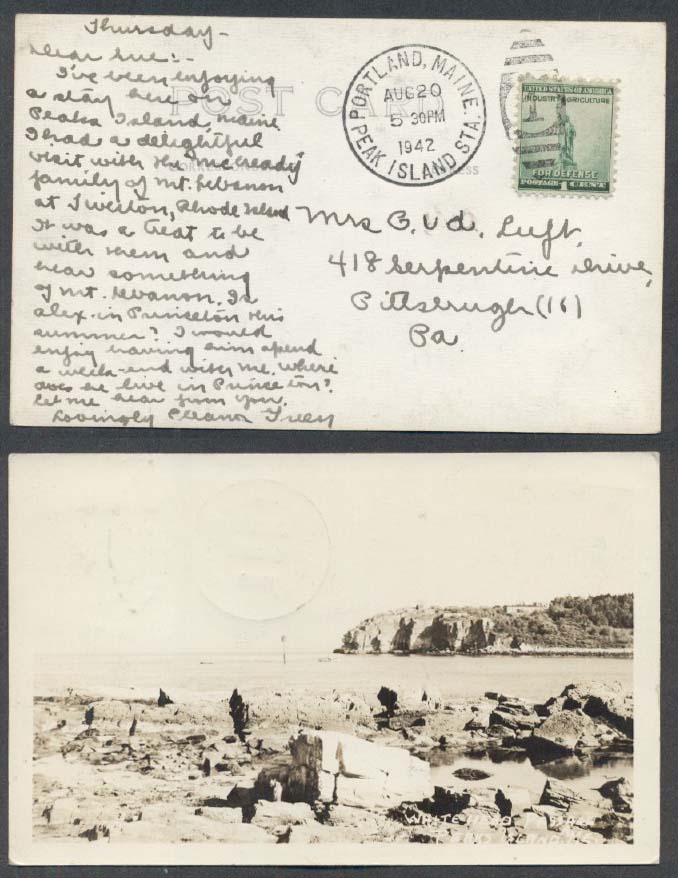 Thursday -
Dear Sue:-
I've been enjoying
a stay here on
Peaks Island, Maine
I had a delightful
visit with the McCready
family of Mt. Lebanon
at Tiverton, Rhode Island
It was a treat to be
with them and
hear something
of Mt. Lebanon. Is
Alex. in Princeton this
summer? I would
enjoy having him spend
a week-end with me. Where
does he live in Princeton?
Let me hear from you.
Lovingly Eleanor
POST CARD
PORTLAND, MAINE.
AUG 20
5 30PM
1942
PEAK ISLAND STA.
UNITED STATES OF AMERICA
INDUSTRY AGRICULTURE
FOR DEFENSE
POSTAGE 1 CENT
Mrs G. v d. Luft,
418 Serpentine Drive,
Pittsburgh (16)
Pa.
WHITE HEAD